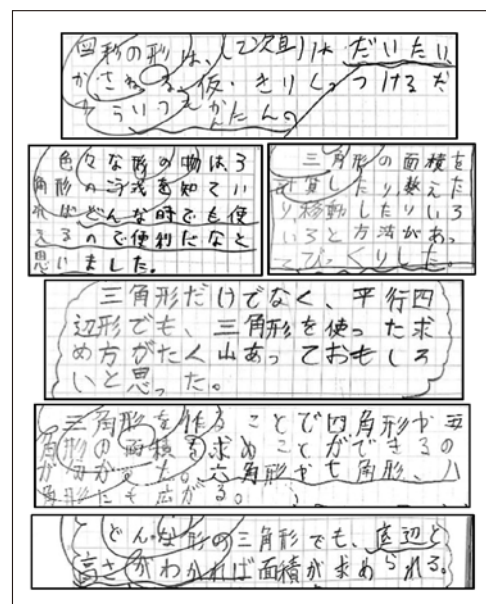 図形の形は、(乙次旦)は だいたい
かさねる、仮・きりくっつけるだ
ういつもかんたんの
色々な形の物は、3
角形の こう式を知ってい
ればどんな時でも使
えるので便利だなと
思いました。
三角形の面積を
計算したり数えた
り移動したりいろ
いろと方法があっ
てびっくりした。
三角形だけでなく、平行四
辺形でも、三角形を使った求
め方がたく山あっておもしろ
いと思った。
三角形を作ることで四角形か五
角形の面積を求めことができるの
がわかった。六角形か七角形、八
角形にも広がる。
どんな形の三角形でも、底辺と
高さがわかれば面積が求められる。